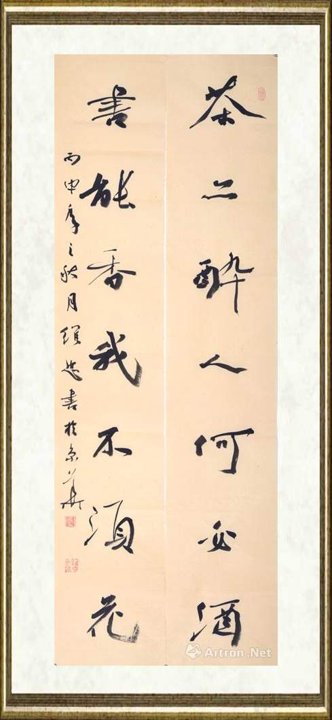 茶亦醉人何必酒
書能香我不須花
丙申年之秋月 書於京華
Artron.Net